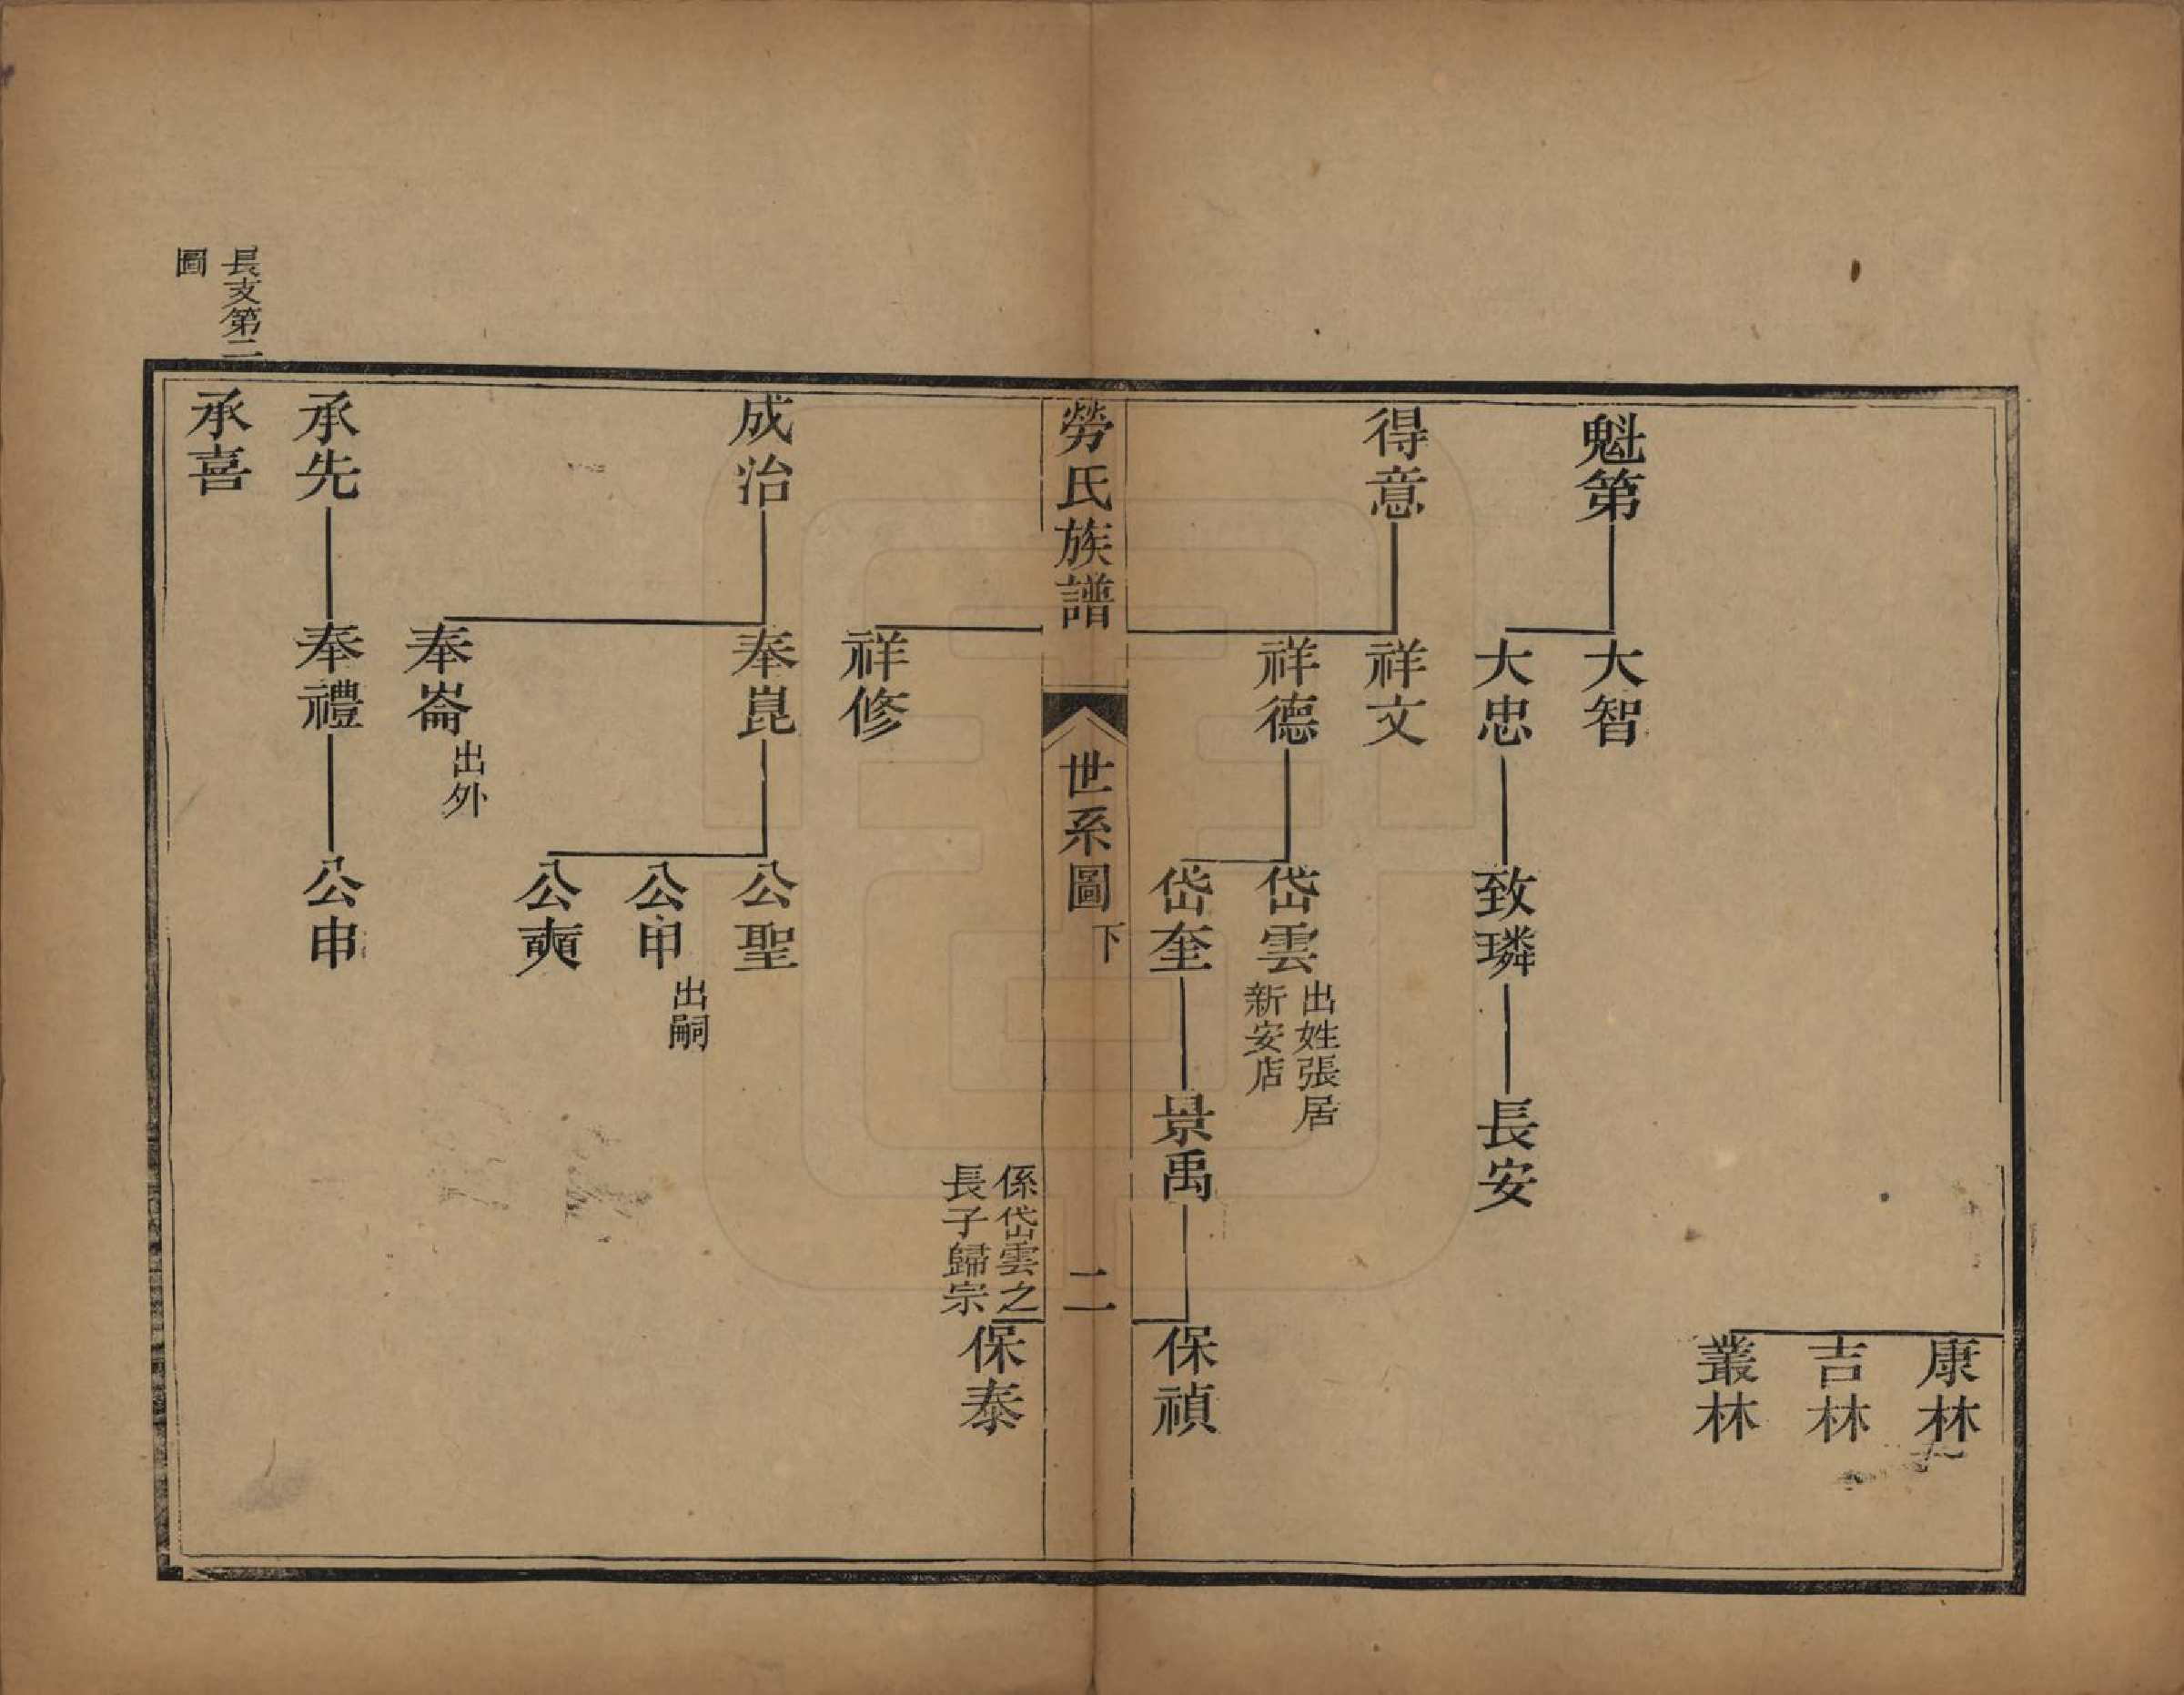 康林
吉林
叢林
魁第
大智
大忠
致璘
長安
得意
祥文
祥德
岱雲
出姓張居
新安店
岱奎
景禹
保禎
勞氏族譜
世系圖
下
二
係岱雲之
長子歸宗
保泰
祥修
成治
奉崑
公聖
公甲
出嗣
公奭
奉崙
出外
承先
奉禮
公申
承喜
長支第二
圖